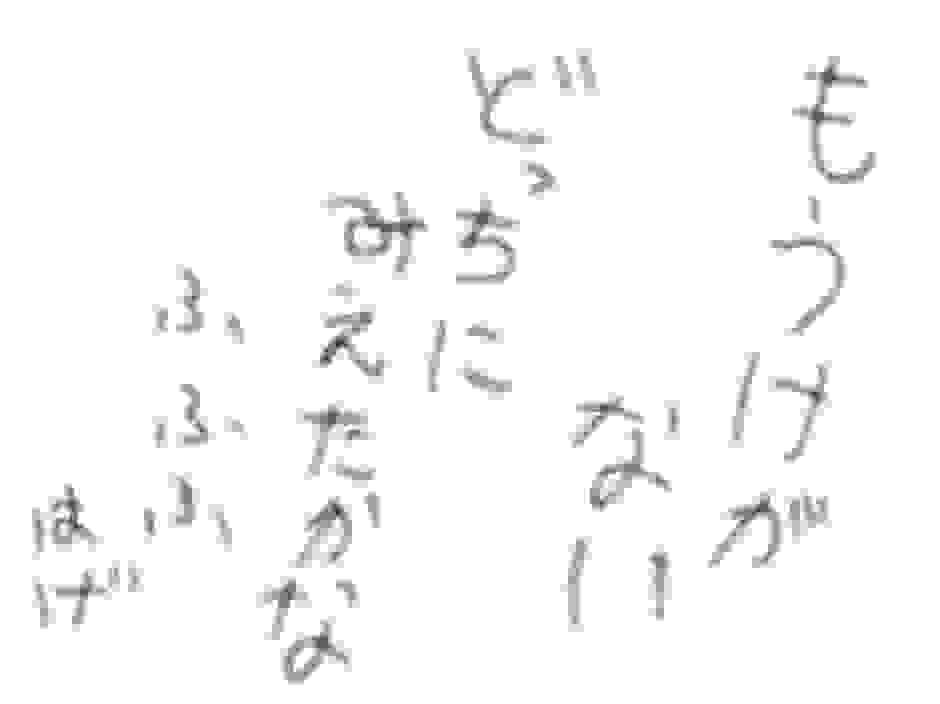 もうけが
ない
どっちに
みえたかな
ふふふ
はげ